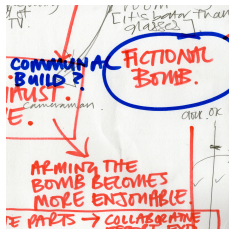 [it's better than
glasses]
COMMUNAL
BUILD?
FICTIONAL
BOMB.
Cameraman
ARMING THE
BOMB BECOMES
MORE ENJOYABLE.
PARTS → COLLABORATIVE